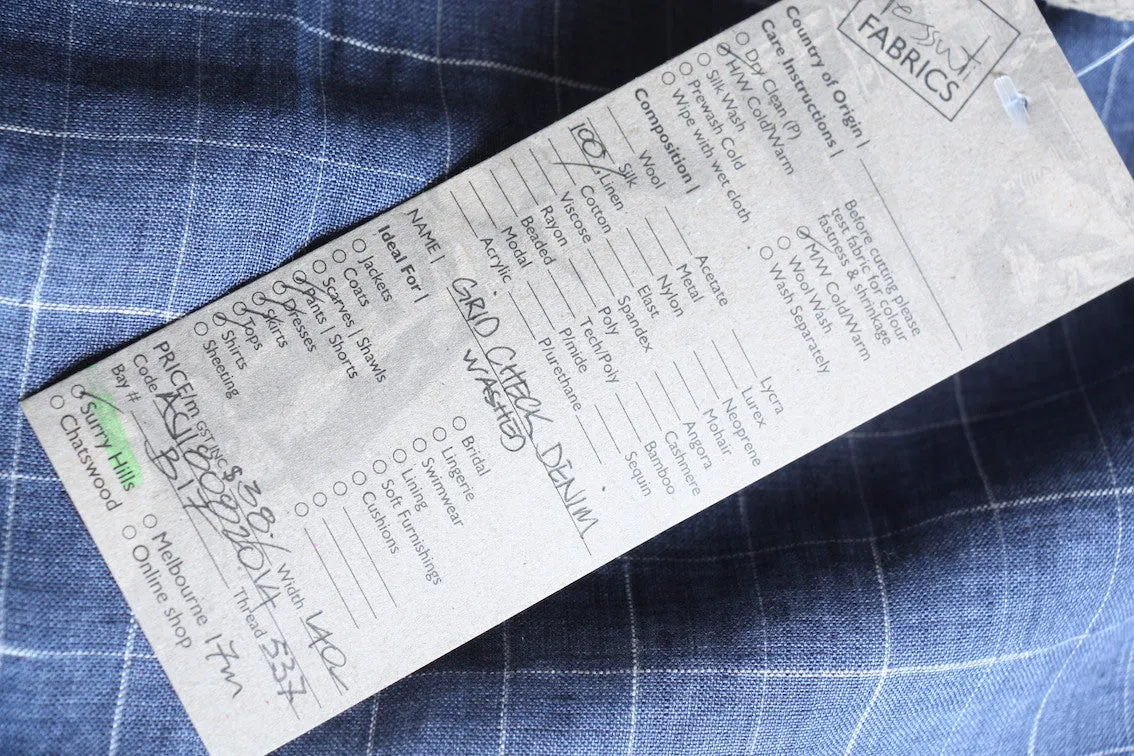 Tessuti
FABRICS
Country of Origin |
Care Instructions |
Dry Clean (P)
H/W Cold/Warm
Silk Wash
Prewash Cold
Wipe with wet cloth
Before cutting please
test fabric for colour
fastness & shrinkage
M/W Cold/Warm
Wool Wash
Wash Separately
Composition |
Wool
Silk
100% Linen
Cotton
Viscose
Rayon
Beaded
Modal
Acrylic
Acetate
Metal
Nylon
Elast
Spandex
Poly
Tech/Poly
P/mide
P/urethane
Lycra
Lurex
Neoprene
Mohair
Angora
Cashmere
Bamboo
Sequin
NAME | GRID CHECK DENIM
WASHED
Ideal For |
Jackets
Coats
Scarves | Shawls
Pants | Shorts
Dresses
Skirts
Tops
Shirts
Sheeting
Bridal
Lingerie
Swimwear
Lining
Soft Furnishings
Cushions
PRICE/m GST INC $38. Width 140c
Code Thread 337
Bay # B17
Surry Hills
Chatswood
Melbourne
Online shop
17m